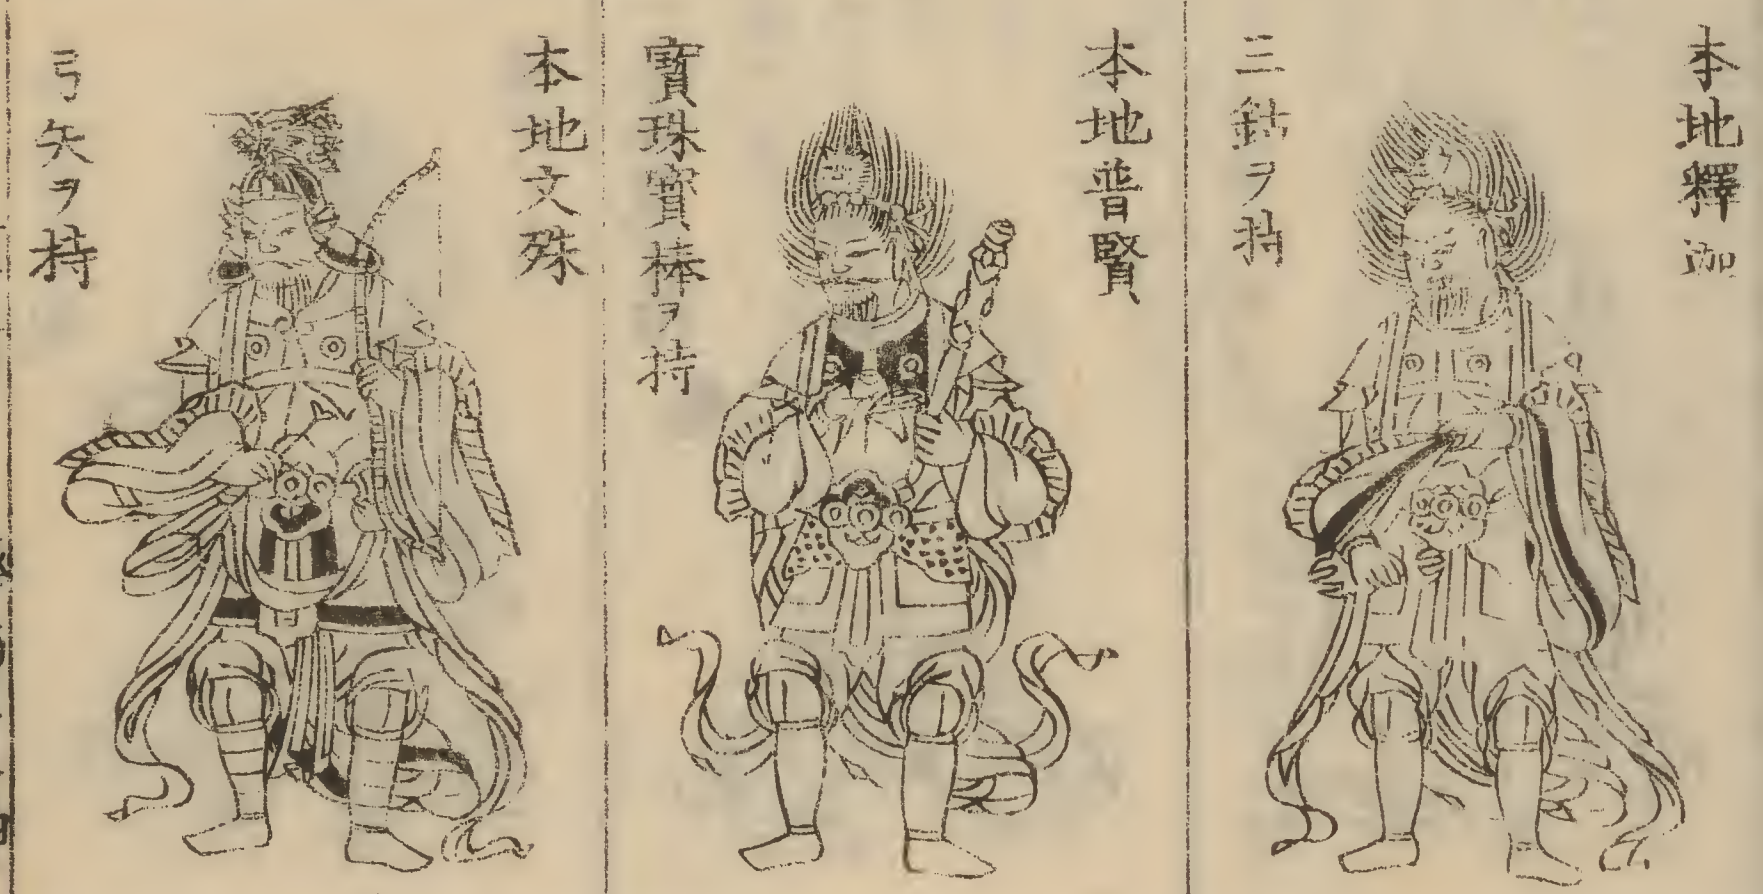 本地釋迦
三鈷ヲ持
本地普賢
寳珠寳棒ヲ持
本地文殊
弓矢ヲ持